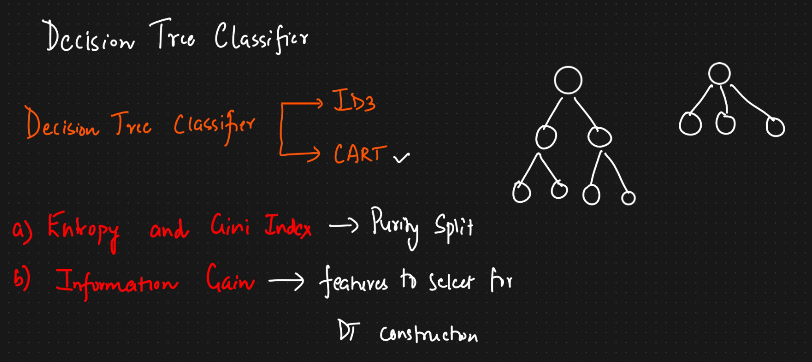 Decision Tree Classifier
Decision Tree Classifier → ID3
→ CART ✓
a) Entropy and Gini Index → Purity Split
b) Information Gain → features to select for
DT construction